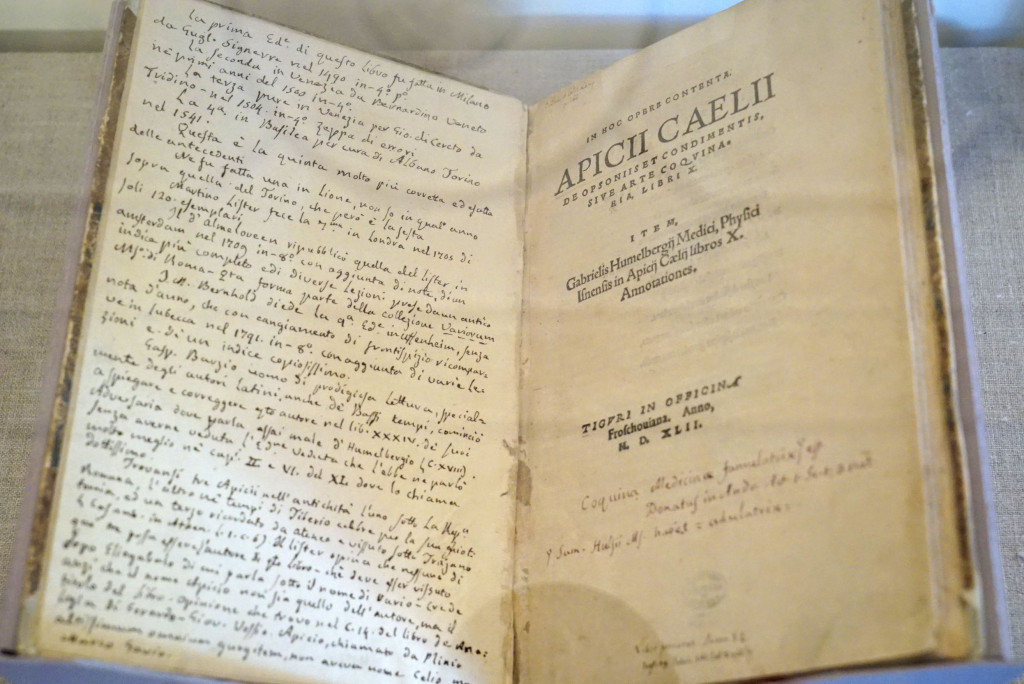 La prima Edᵉ. di questo libro fu fatta in Milano
da Gugl. Signerre nel 1490 in-4º. pº
La seconda in Venezia da Bernardino Veneto
ne' primi anni del 1500 in-4º.
La terza pure in Venezia per Gio. de Cereto da
Tridino - nel 1504. in-4º. zeppa di errori
La 4ª. in Basilea per cura di Albano Torino
nel 1541.
Questa è la quinta molto più corretta ed esatta
delle antecedenti
Ne fu fatta una in Lione, non so in qual anno
sopra quella del Torino, che però è la sesta
Martino Lister fece la 7ᵐᵃ. in Londra nel 1705 di
soli 120. esemplari
Il d'Almeloveen ripubblicò quella del Lister, in
Amsterdam nel 1709 in-8º. con aggiunta di note, d'un
indice più completo e di diverse lezioni prese da un antico
Ms. di Roma - forma parte della collezione Variorum
J. M. Bernhold diede la 9ª. Edᵉ. in Uffenheim, senza
nota d'anno, che con cangiamento di frontispizio ricompar
ve in Lubecca nel 1791. in-8º. con aggiunta di varie le
zioni e di un indice copiosissimo.
Gasp. Barzio uomo di prodigiosa lettura, special
mente degli autori latini, anche de' bassi tempi, cominciò
a spiegare e correggere qto autore nel lib. XXXIV. de' suoi
Adversaria dove parla assai male di Humelbergio (C. XVIII)
senza averne veduta l'Edne veduta che l'ebbe ne parlò
molto meglio ne' capi II e VI. del XL. dove lo chiama
dottissimo.
Trovansi tre Apicii nell'antichità l'uno sotto La Repu
l'altro ne' tempi di Tiberio celebre per la sua ghiot
toneria, ed un terzo ricordato da Ateneo e vissuto sotto Trajano
Casaub. in Athen. Il Lister opina che nessuno di
possa essere l'autore di qto libro - che deve esser vissuto
dopo Eliogabalo di cui parla sotto il nome di Vario - crede
anzi che il nome Apicio non sia quello dell'autore, ma il
titolo del libro - opinione che trovo nel C. 14. del libro de
logia di Gerardo - Giov. Vossio. Apicio, chiamato da Plinio
altissimum omnium gurgitem, non aveva nome Celio
Marco Gavio.
IN HOC OPERE CONTENTA
APICII CAELII
DE OPSONIIS ET CONDIMENTIS,
SIVE ARTE COQVINA-
RIA, LIBRI X.
ITEM,
Gabrielis Humelbergij Medici, Physici
Isnensis in Apicij Cælij libros X.
Annotationes.
TIGVRI IN OFFICINA
Froschouiana. Anno,
M. D. XLII.
Coquina Medicinæ famulatrix est
Donatus in